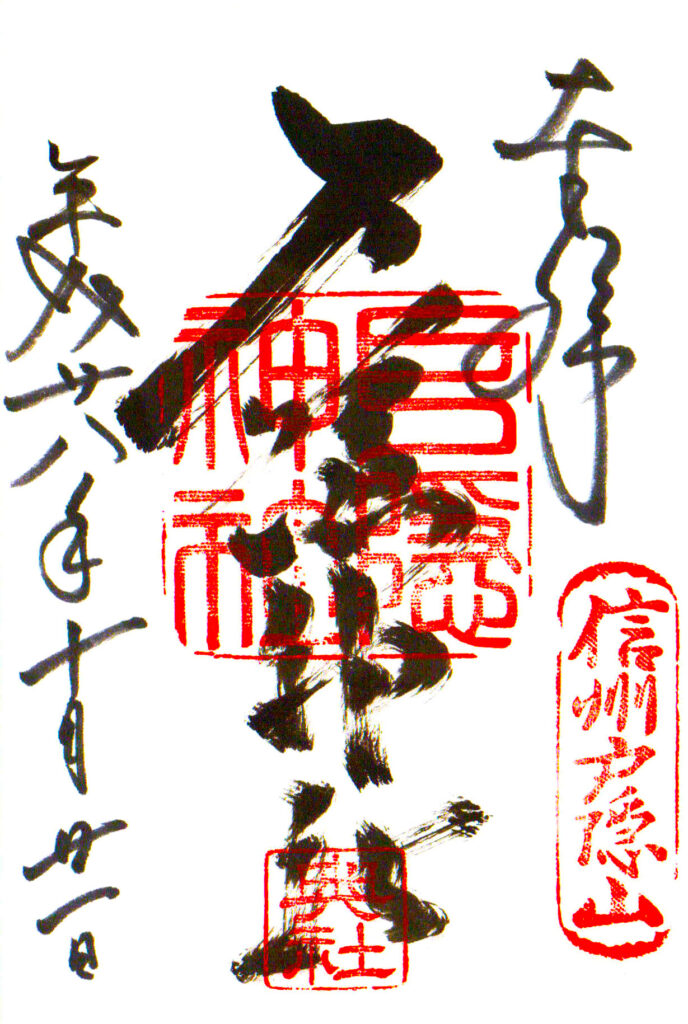 奉拝
信州戸隠山
戸隠神社
戸隠
神社
奥社
平成廿八年十月廿一日